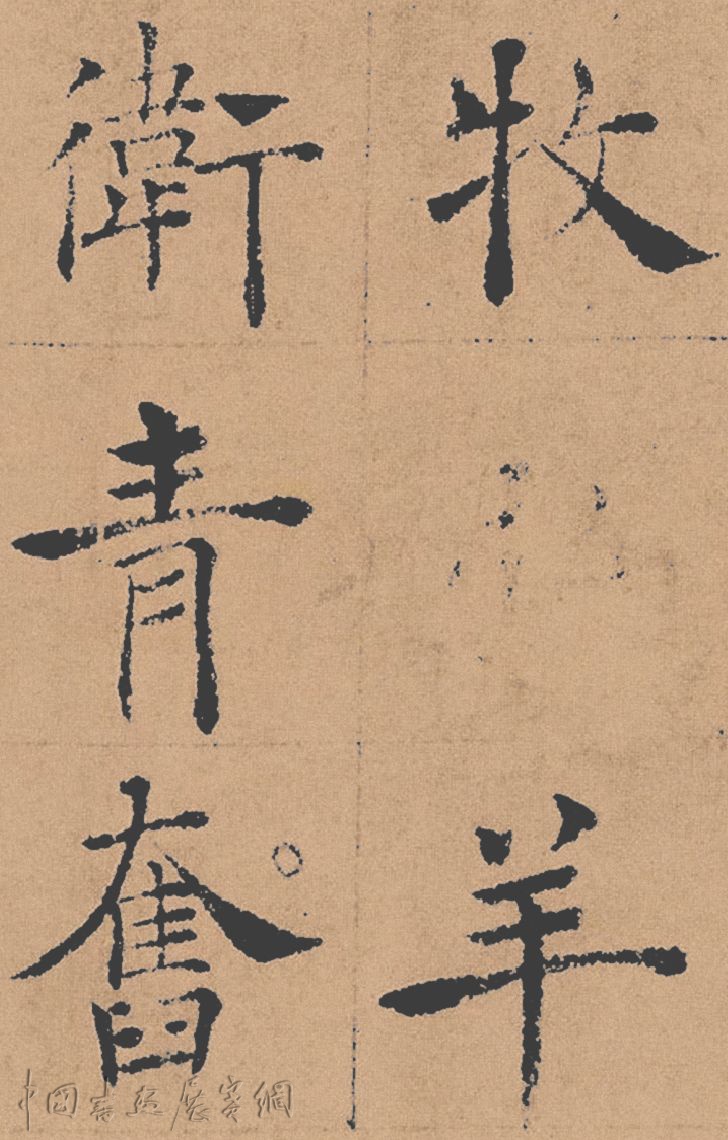 牧羊
衛青奮
中国书法展赛网